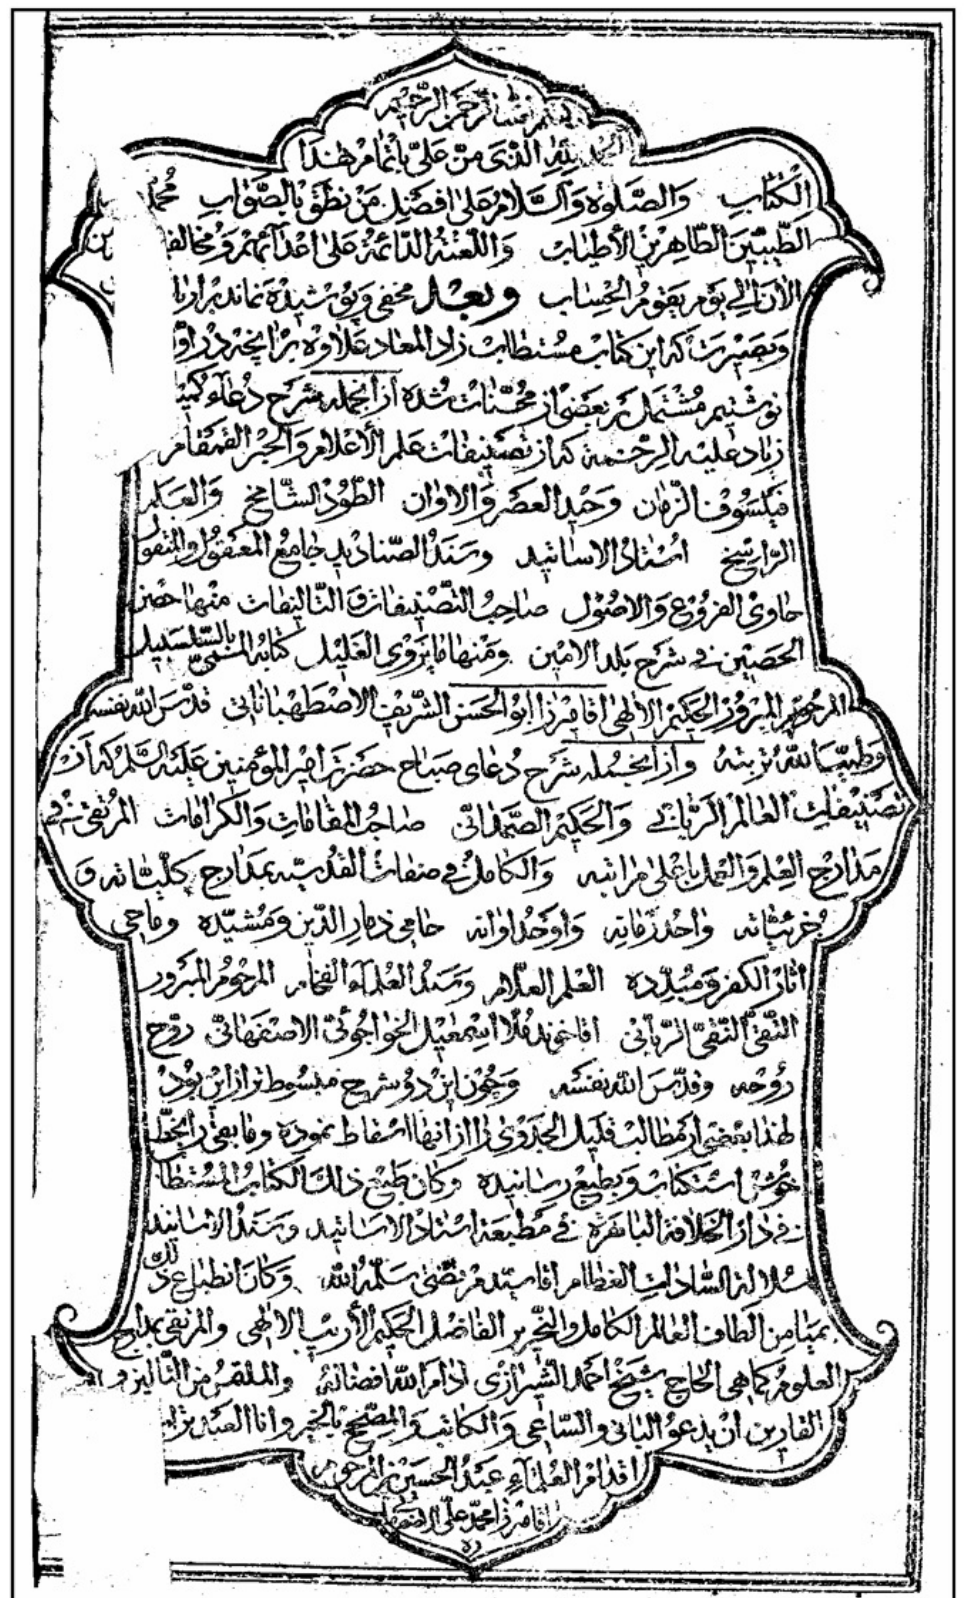 بسم الله الرحمن الرحیم
الحمد لله الذی من علیّ باتمام هذا
الکتاب والصلوة والسلام علی افضل من نطق بالصواب محمد
الطیبین الطاهرین الأطیاب واللعنة الدائمة علی اعدائهم و مخالف
الآن الی یوم یقوم الحساب وبعد مخفی و پوشیده نماند بر ار
وبصیرت که این کتاب مستطاب زاد المعاد علاوه بر آنچه در او
نوشتیم مشتمل بر بعضی از محسّنات شده از آنجمله شرح دعاء کمیل
زیاد علیه الرحمة که از تصنیفات علم الأعلام والحبر القمقام
فیلسوف الزمان وحید العصر والاوان الطود الشامخ والعلم
الراسخ استاد الاساتید وسند الصنادید جامع المعقول والمنقول
حاوی الفروع والاصول صاحب التصنیفات والتالیفات منها حصن
الحصین فی شرح بلد الامین ومنها ما یروی الغلیل کتابه المسمّی بالسلسبیل
المرحوم المبرور الحکیم الالهی اقا میرزا ابوالحسن الشریف الاصطهباناتی قدّس الله نفسه
وطیّب الله تربته و از آنجمله شرح دعای صباح حضرت امیر المؤمنین علیه السلم که از
تصنیفات العالم الربانی والحکیم الصمدانی صاحب المقامات والکرامات المرتقی فی
مدارج العلم والعمل باعلی مراتبه والکامل فی صفات القدسیه بمدارج کلیاته و
جزئیاته واحد زمانه واوحد اوانه حامی ذمار الدین ومشیّده وماحی
اثار الکفر ومبدّده العلم العلام وسند العلماء الفخام المرحوم المبرور
التقی النقی الربانی اقا اخوند ملا اسمعیل الخواجوئی الاصفهانی روّح
روحه وقدّس الله نفسه وچون این دو شرح مبسوط تر از این بود
لهذا بعضی از مطالب قلیل الجدوی را از انها اسقاط نموده و مابقی را بخط
خوش استکتاب و بطبع رسانیده وکان طبع ذلک الکتاب المستطا
فی دار الخلافة الباهرة فی مطبعة استاد الاساتید وسند الاسانید
سلالة السادات العظام اقا سید مرتضی سلّمه الله وکان انطباع ذلک
بمیامن الطاف العالم الکامل والنحریر الفاضل الحکیم الأریب الالهی والمرتقی بمدارج
العلوم کماهی الحاج شیخ احمد الشیرازی ادام الله افضاله والملتمس من التالین و
القارین ان یدعو البانی والساعی والکاتب والمصحح بالخیر وانا العبد تراب
اقدام العلماء عبد الحسین بن المرحوم
اقا میرزا محمد علی الاصفهانی
ره